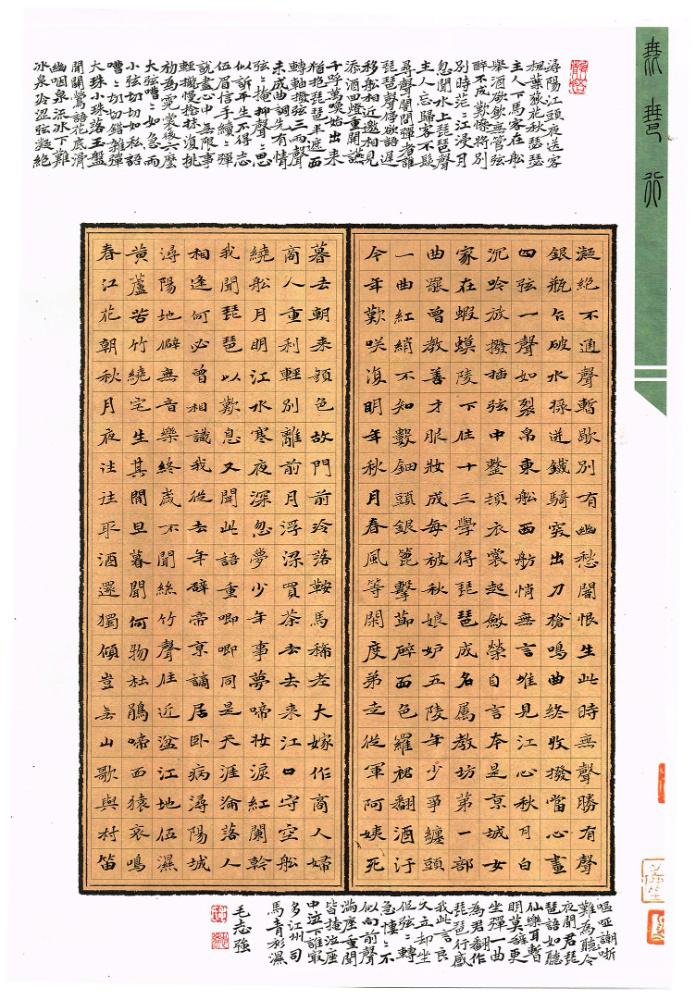 琵琶行
潯陽江頭夜送客
楓葉荻花秋瑟瑟
主人下馬客在船
舉酒欲飲無管弦
醉不成歡慘將別
別時茫〻江浸月
忽聞水上琵琶聲
主人忘歸客不發
尋聲闇問彈者誰
琵琶聲停欲語遲
移船相近邀相見
添酒回燈重開宴
千呼萬喚始出來
猶抱琵琶半遮面
轉軸撥弦三兩聲
未成曲調先有情
弦〻掩抑聲〻思
似訴平生不得志
低眉信手續〻彈
說盡心中無限事
輕攏慢捻抹復挑
初為霓裳後六么
大弦嘈〻如急雨
小弦切切如私語
嘈〻切切錯雜彈
大珠小珠落玉盤
間關鶯語花底滑
幽咽泉流冰下難
冰泉冷澀弦凝絕
凝絕不通聲暫歇別有幽愁闇恨生此時無聲勝有聲
銀瓶乍破水漿迸鐵騎突出刀槍鳴曲終收撥當心畫
四弦一聲如裂帛東船西舫悄無言唯見江心秋月白
沉吟放撥插弦中整頓衣裳起斂容自言本是京城女
家在蝦蟆陵下住十三學得琵琶成名屬教坊第一部
曲罷曾教善才服妝成每被秋娘妒五陵年少爭纏頭
一曲紅綃不知數鈿頭銀篦擊節碎血色羅裙翻酒汙
今年歡咲復明年秋月春風等閑度弟走從軍阿姨死
暮去朝來顏色故門前冷落鞍馬稀老大嫁作商人婦
商人重利輕別離前月浮梁買茶去去來江口守空船
繞船月明江水寒夜深忽夢少年事夢啼妝淚紅闌幹
我聞琵琶以歎息又聞此語重唧唧同是天涯淪落人
相逢何必曾相識我從去年辭帝京謫居卧病潯陽城
潯陽地僻無音樂終歲不聞絲竹聲住近湓江地低濕
黃蘆苦竹繞宅生其間旦暮聞何物杜鵑啼血猿哀鳴
春江花朝秋月夜往往取酒還獨傾豈無山歌與村笛
嘔啞嘲哳
難為聽今
夜聞君琵
琶語如聽
仙樂耳暫
明莫辭更
坐彈一曲
為君翻作
琵琶行感
我此言良
久立却坐
促弦〻轉
急悽〻不
似向前聲
滿座重聞
皆掩泣座
中泣下誰最
多江州司
馬青衫濕
毛志強